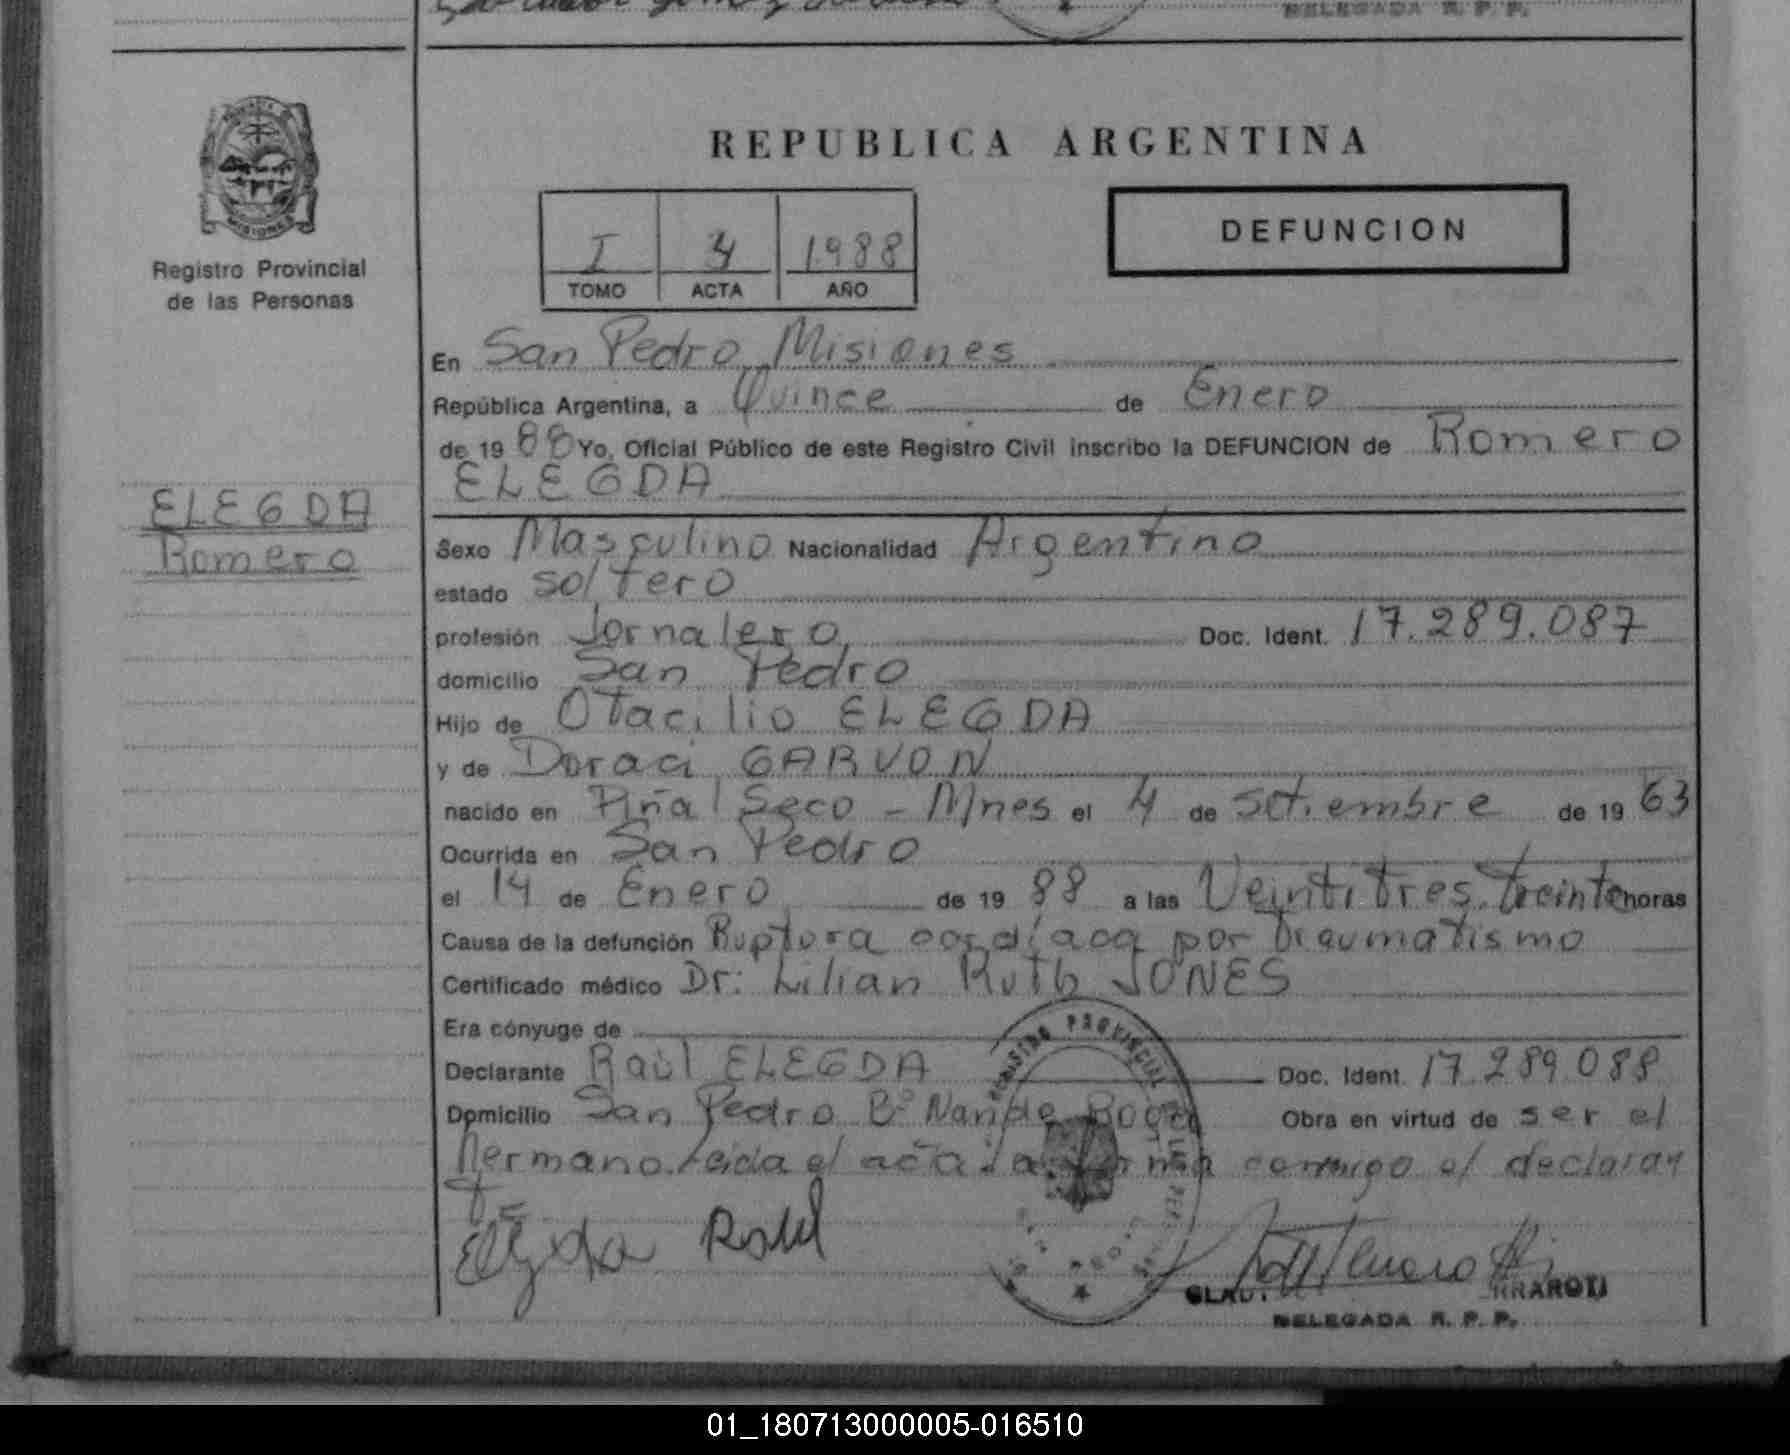 DELEGADA R. P. P.
Registro Provincial
de las Personas
ELEGDA
Romero
REPUBLICA ARGENTINA
I 4 1988
TOMO ACTA AÑO
DEFUNCION
En San Pedro Misiones
República Argentina, a Quince de Enero
de 1988 Yo, Oficial Público de este Registro Civil inscribo la DEFUNCION de Romero
ELEGDA
Sexo Masculino Nacionalidad Argentino
estado soltero
profesión Jornalero Doc. Ident. 17.289.087
domicilio San Pedro
Hijo de Otacilio ELEGDA
y de Doraci GARVON
nacido en Piñal Seco - Mnes el 4 de setiembre de 1963
Ocurrida en San Pedro
el 14 de Enero de 1988 a las Veintitres treinta horas
Causa de la defunción Ruptura cardíaca por traumatismo
Certificado médico Dr: Lilian Ruth JONES
Era cónyuge de
Declarante Raúl ELEGDA Doc. Ident. 17.289.088
Domicilio San Pedro Bº Obra en virtud de ser el
hermano. Leida el acta la firma conmigo el declaran
te
Elegda Raul
REGISTRO PROVINCIAL
DELEGADA R. P. P.
01_180713000005-016510